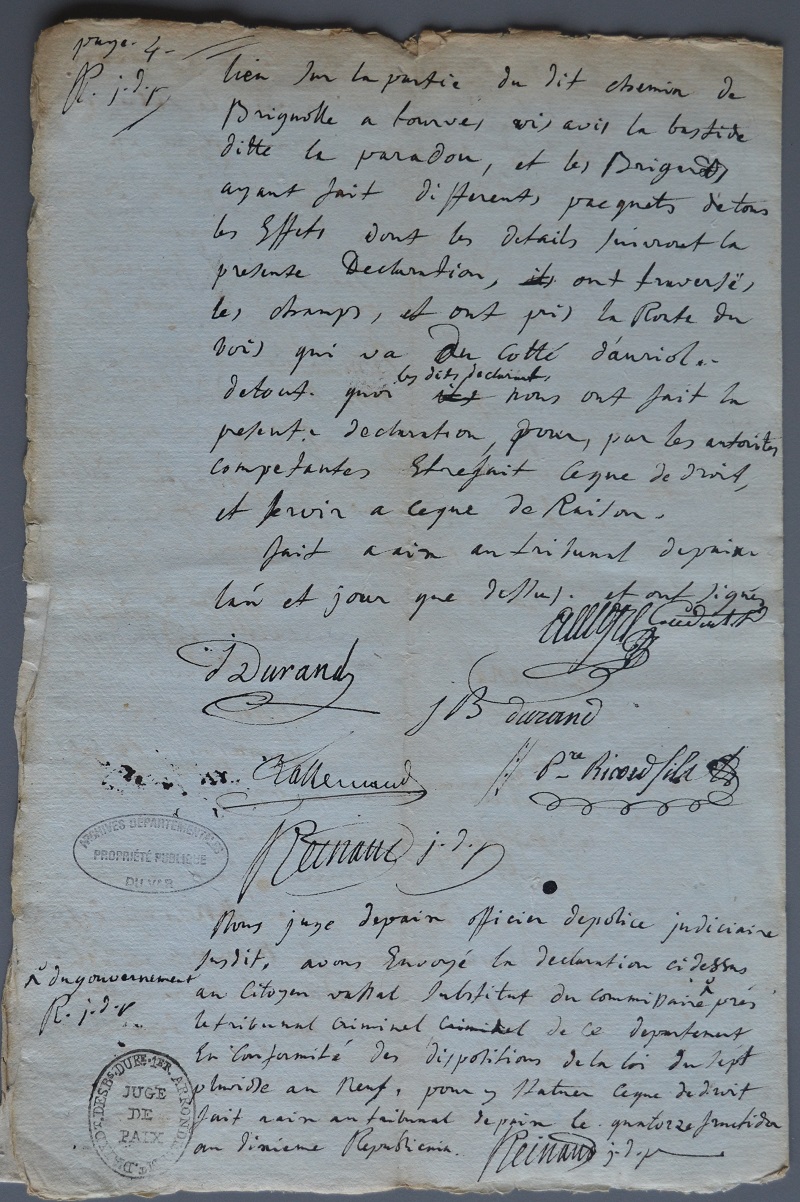 page 4
R. j. d. p
lieu sur la partie du dit chemin de
Brignolle a tourves vis avis la bastide
ditte la paradou, et les Brigands
ayant fait differents pacquets detous
les Effets dont les details suivront la
presente Declaration, ils ont traversés
les champs, et ont pris la Route du
bois qui va Du cotté d'auriol..
detout. quoi les dits declarants nous ont fait la
presente declaration, pour, par les autorités
competantes Etrefait ceque de droit,
et servir a ceque de Raison.
fait a aix au tribunal depaix
lan et jour que dessus. et ont signés
J Durand
JB durand
Lallemand
Pre Ricard fils
ARCHIVES DÉPARTEMENTALES
PROPRIÉTÉ PUBLIQUE
DU VAR
Reinaud j. d. p
Nous juge depaix officier depolice judiciaire
susdit, avons Envoyé la declaration cidessus
au Citoyen vassal substitut du commissaire près
du gouvernement
R. j. d. p
letribunal criminel criminel de ce departement
En conformité des dispositions de la loi du sept
pluviose an Neuf, pour y statuer ceque dedroit
fait a aix au tribunal depaix le quatorze fructidor
an dixieme Republicain. Reinaud j. d. p
JUGE
DE
PAIX